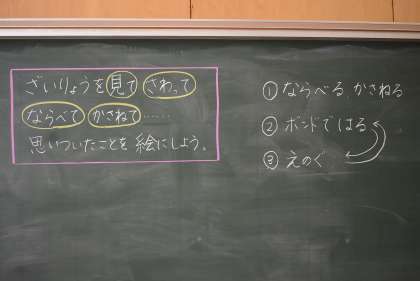 ざいりょうを見て さわって
ならべて かさねて……
思いついたことを 絵にしよう。
① ならべる かさねる
② ボンドで はる
③ えのぐ